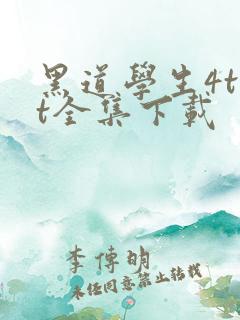 黑道學生4t
t全集下載
李傳明
未经同意禁止转载